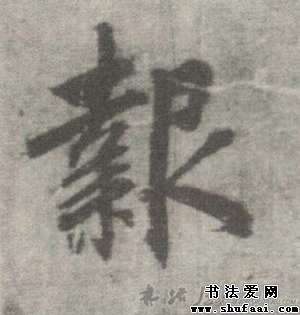 報
书法爱网
www.shufaai.com